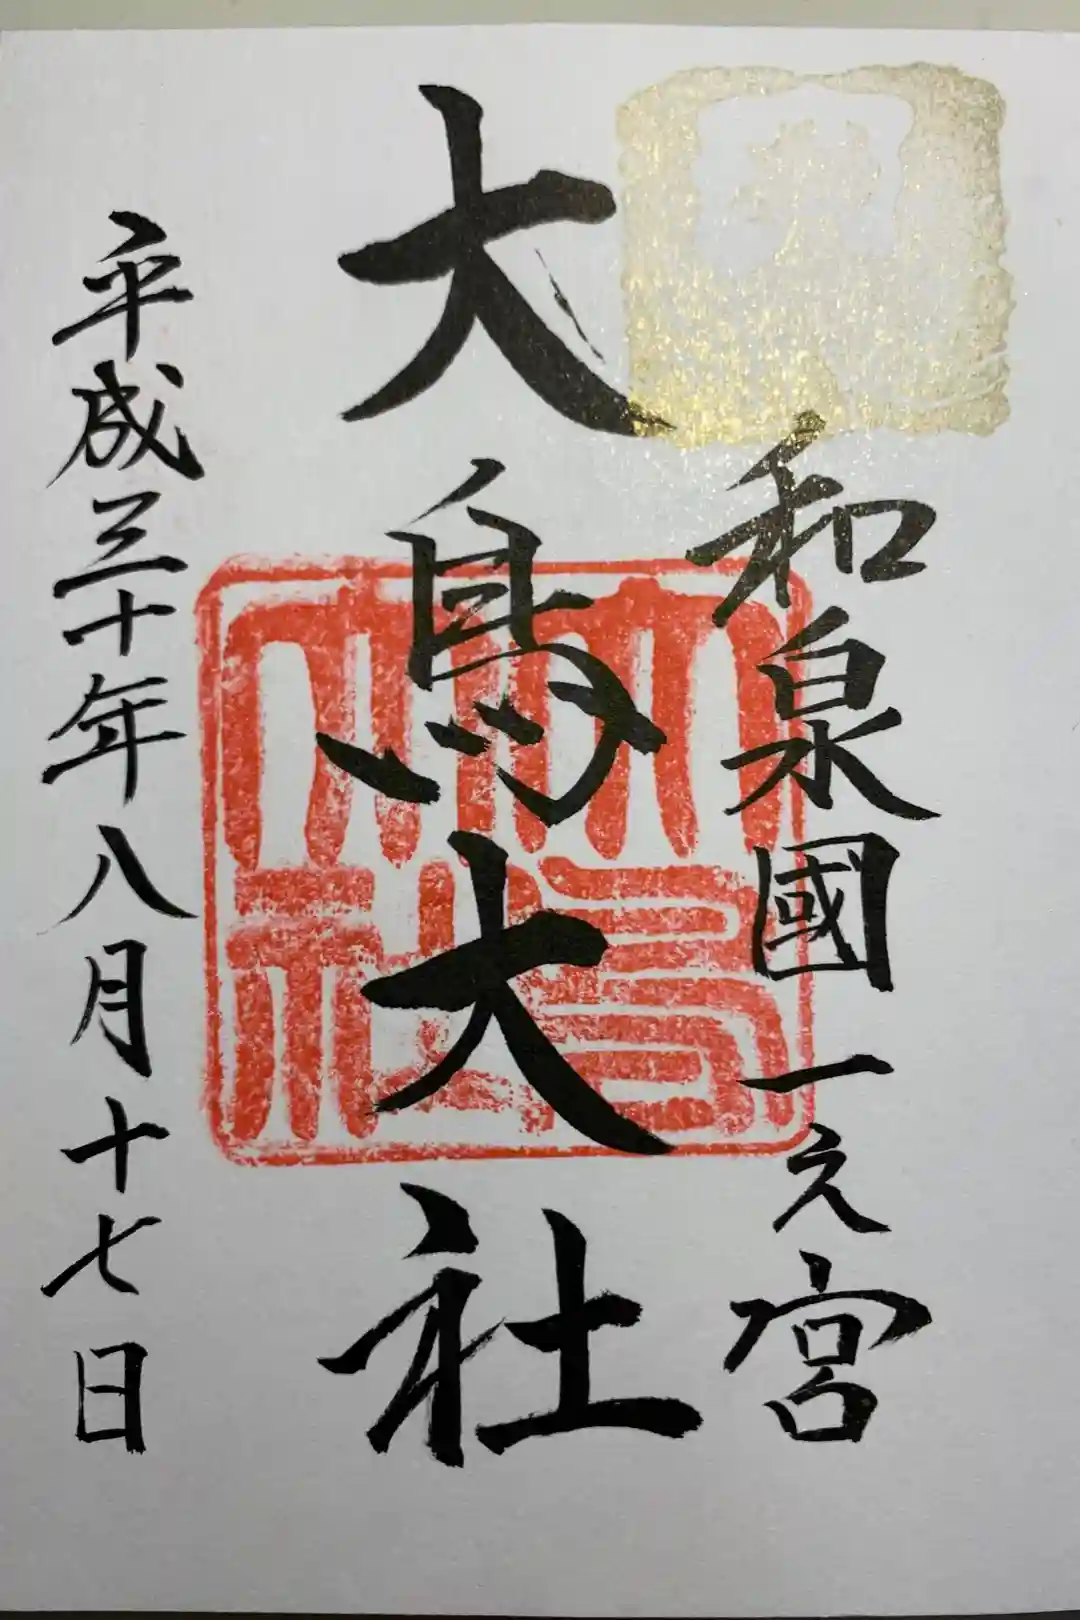 和泉國一之宮
大鳥大社
大鳥大社
平成三十年八月十七日